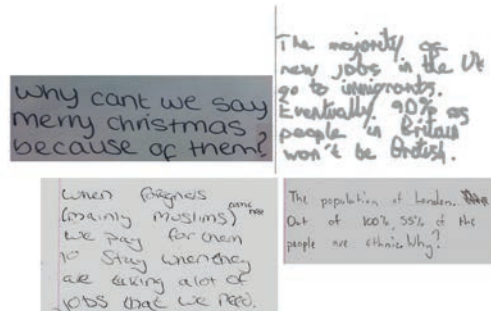 Why cant we say
merry christmas
because of them?
The majority of
new jobs in the UK
go to immigrants.
Eventually. 90% of
people in Britain
won't be British.
when foreigners
(mainly muslims) come here
we pay for them
to stay when they
are taking a lot of
jobs that we need.
The population of London.
Out of 100%, 55% of the
people are ethnic. Why?